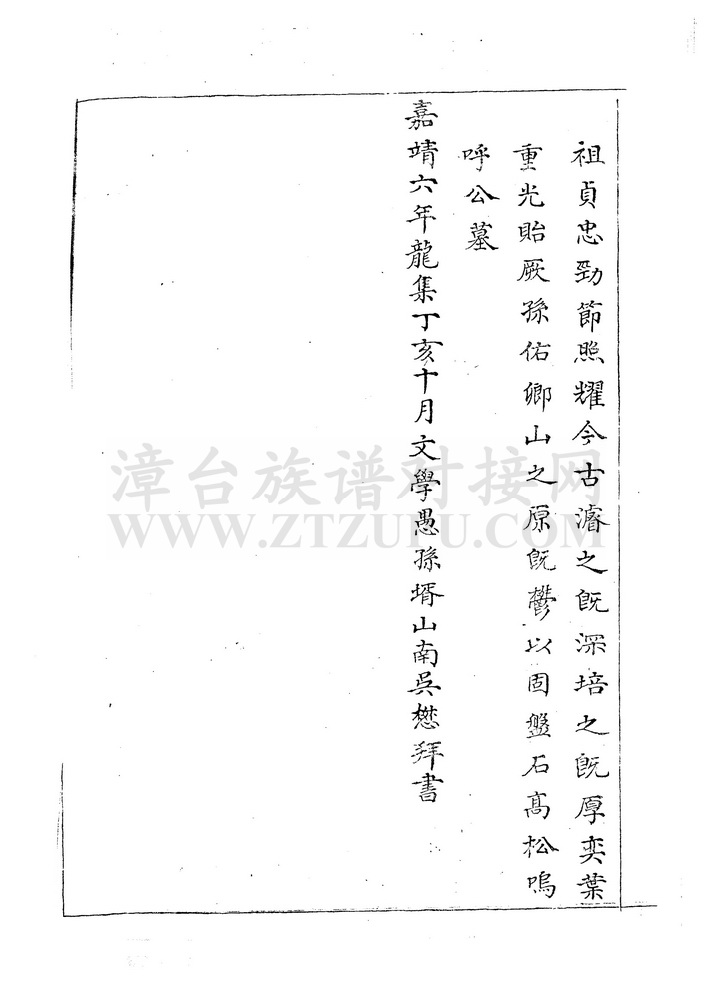 祖貞忠勁節照耀今古濬之旣深培之旣厚奕葉
重光貽厥孫佑卿山之原旣鬱以固盤石高松嗚
呼公墓
嘉靖六年龍集丁亥十月文學愚孫壻山南吳懋拜書
漳台族谱对接网
WWW.ZTZUPU.COM